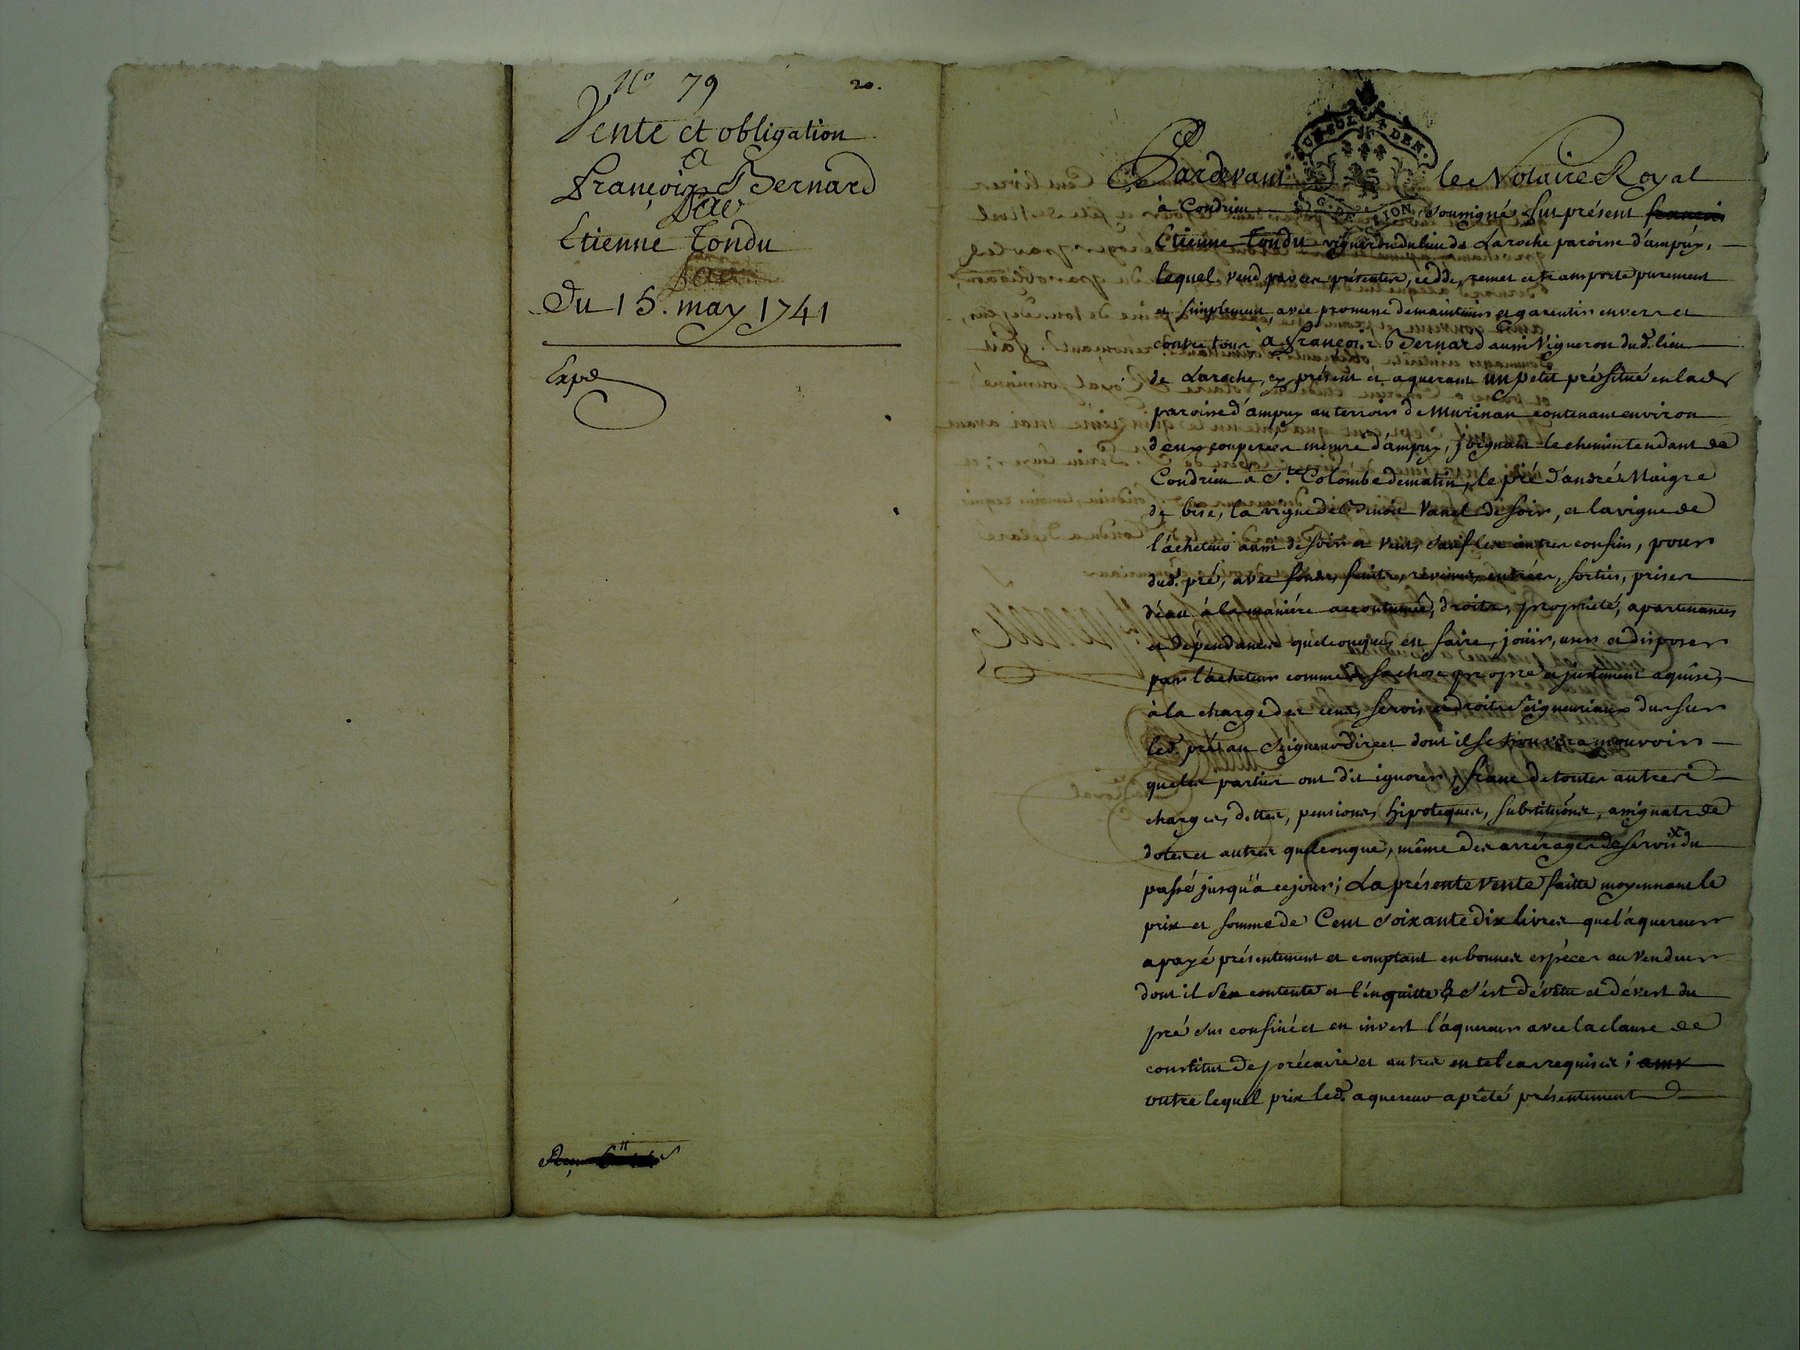 N° 79
20.
Vente et obligation
a
François Bernard
Par
Etienne Tondu
Du 15. may 1741
Expe
Pardevant le Notaire Royal
à Condrieu soussigné fut présent françois
Etienne Tondu vigneron du lieu de Laroche paroisse d'ampuy,
lequel vend par ces présentes, cedde, remet et transporte purement
et simplement, avec promesse de maintenir et garentir envers et
contre tous à François Bernard aussi Vigneron dud. lieu
de Laroche, cy présent et aquerant un petit pré situé en lad.
paroisse d'ampuy au terroir de contenant environ
deux couperées mesure d'ampuy, joignant le chemin tendant de
Condrieu a Ste Colombe de matin, le pré d'andré Maigre
de bise, la vigne de Benoit Vanel de soir, et la vigne de
l'acheteur aussi de soir et vent, sauf les autres confins, pour
dud. pré, avec fonds, fruits, revenus, entrées, sorties, prises
d'eau à la manière accoutumée, droits, propriété, apartenances
et dépendances quelconques en faire, jouir, user et disposer
par l'acheteur comme de sa chose propre et justement aquise,
à la charge des cens, servis et droits Seigneuriaux dus sur
led. pré au Seigneur direct dont il se trouvera mouvoir
que les parties ont dit ignorer, franc de toutes autres
charges, dettes, pensions, hipoteques, substitutions, assignats de
dotes et autres quelconques, même des arrérages de servis du
passé jusqu'à ce jour; La présente vente faitte moyennant le
prix et somme de Cent soixante dix livres que l'aquereur
a payé présentement et comptant en bonnes espéces au vendeur
dont il s'en contente et l'en quitte & s'est dévétu et dévest du
pré sus confiné et en invest l'aquereur avec la clause de
constitut de précaire et autres en tel cas requises;
outre lequel prix led. aquereur a prêté présentement